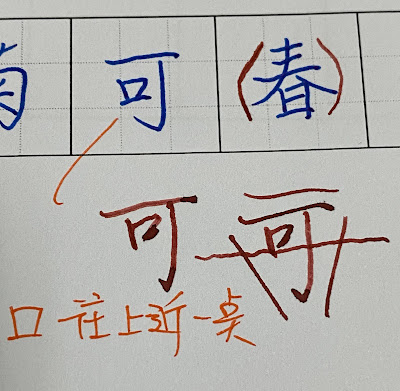 可(春)
可 可
口往上近一点